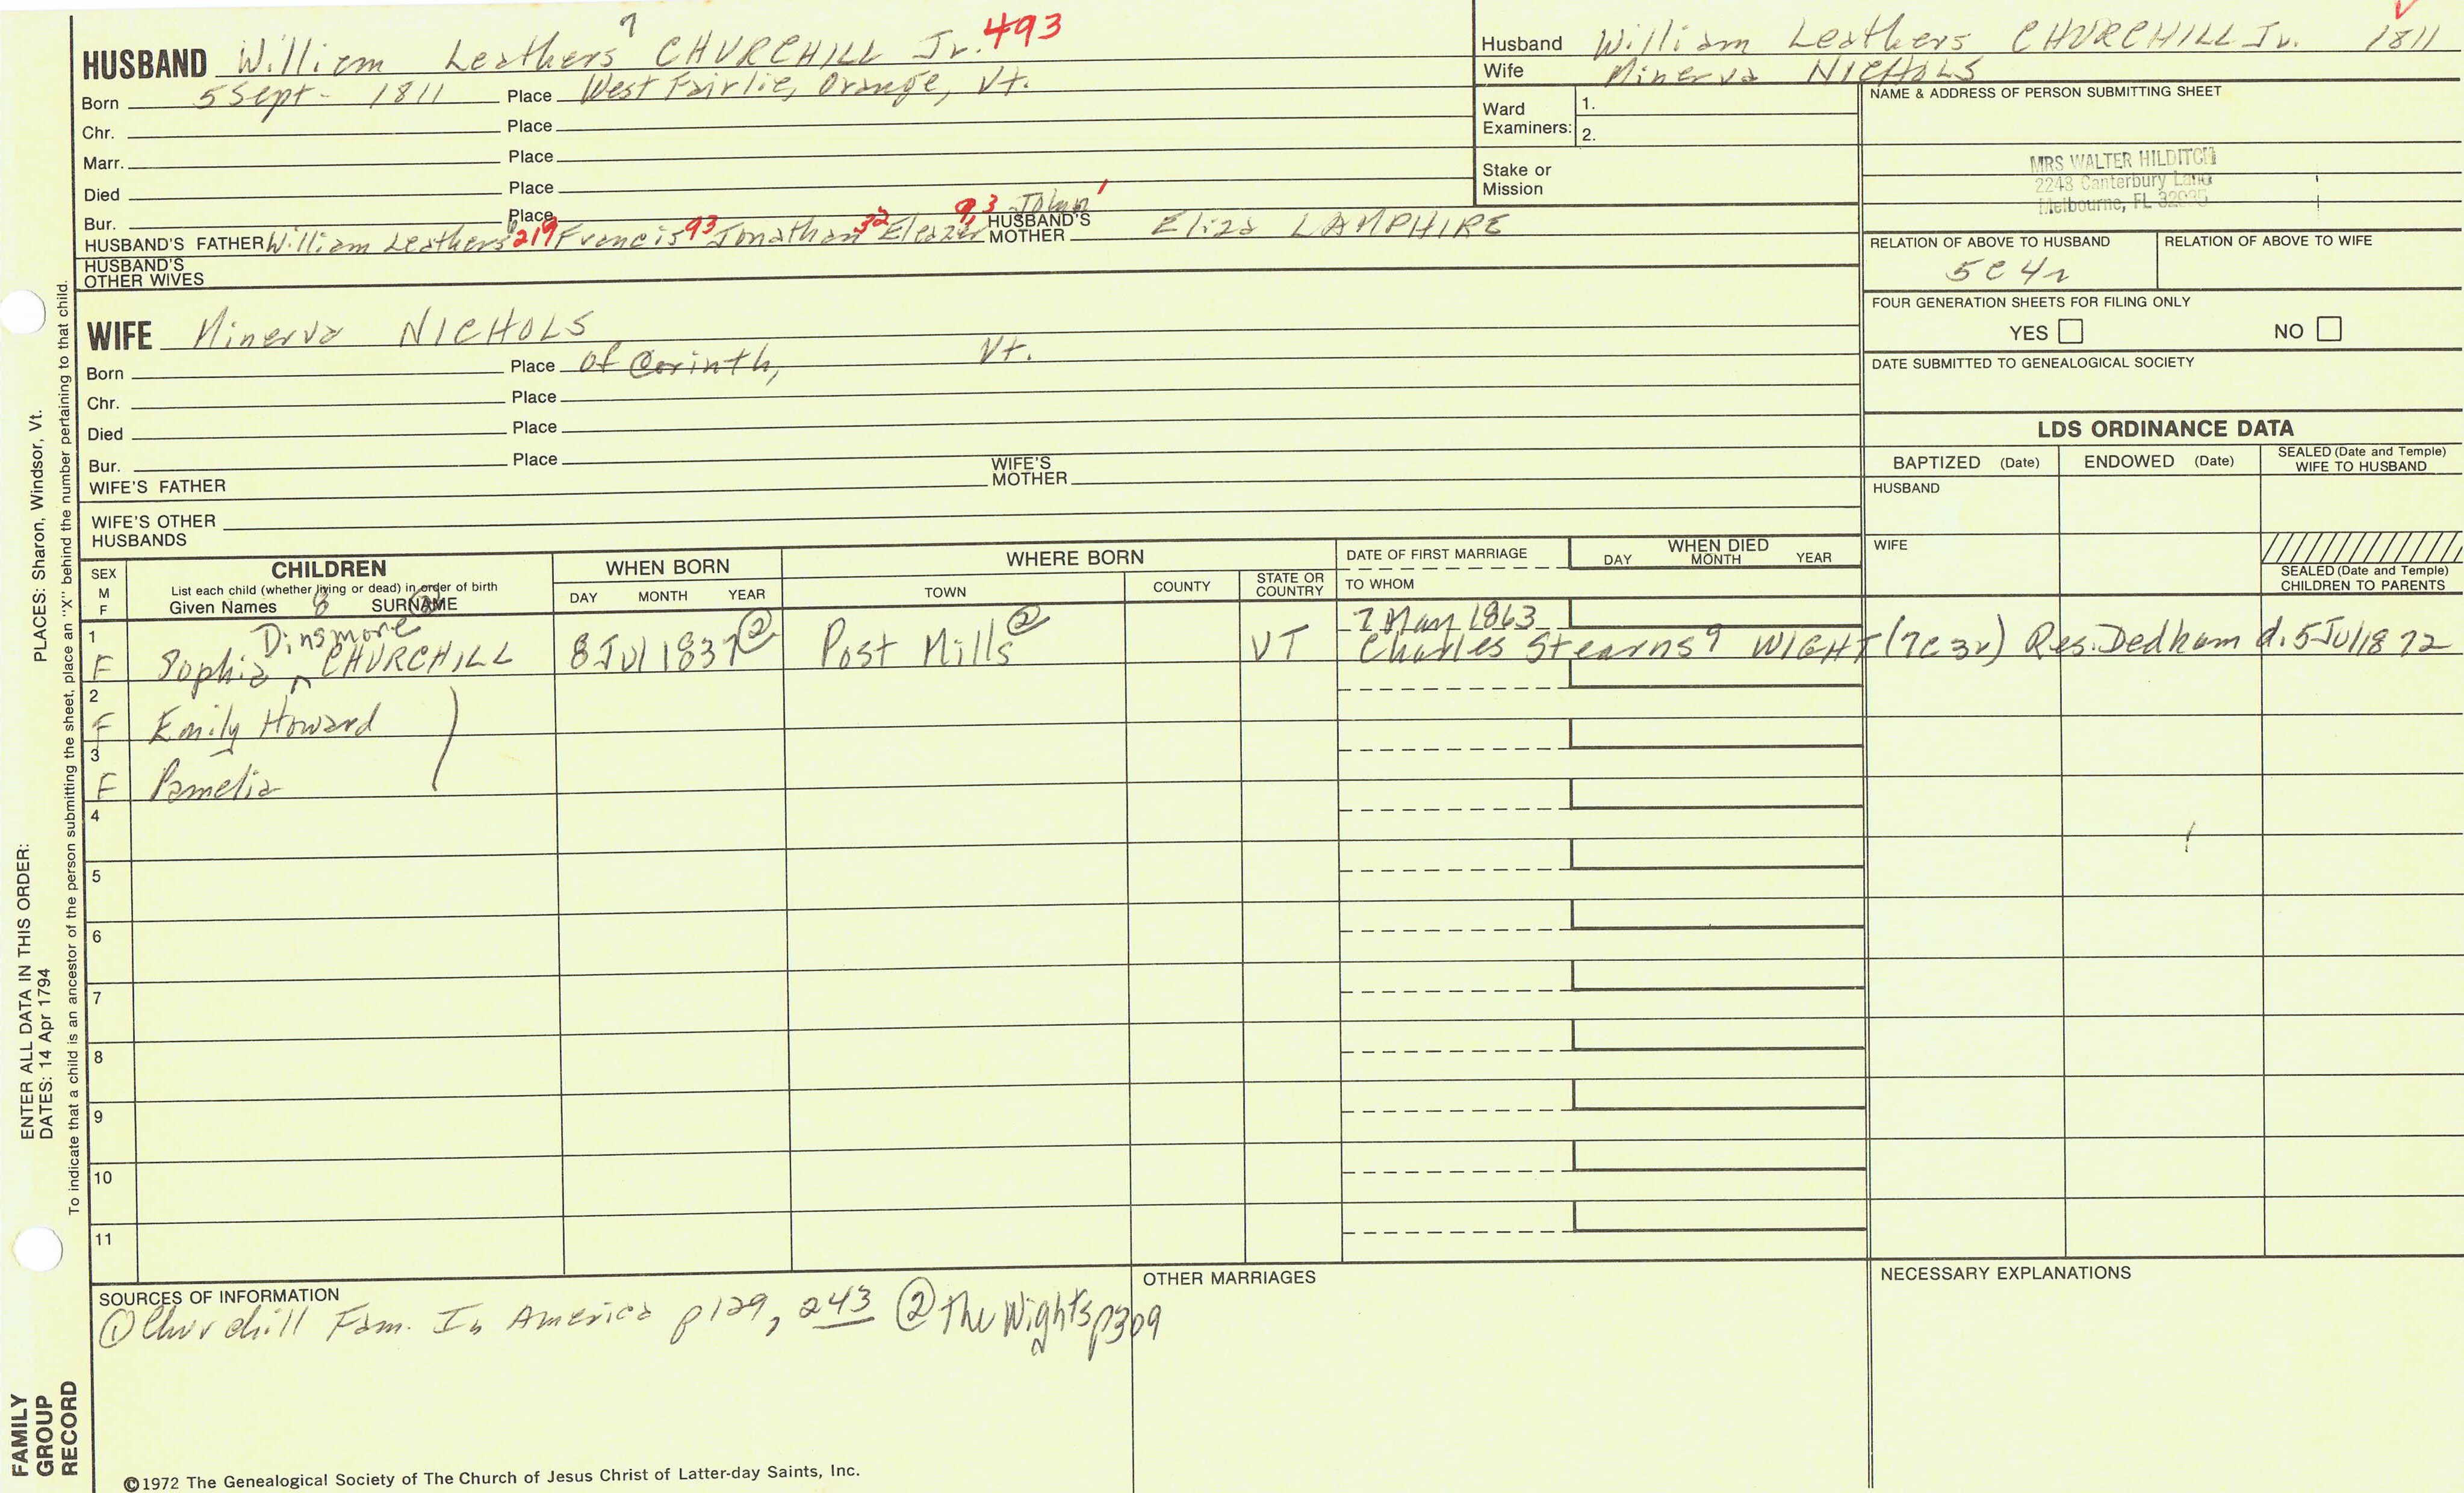 HUSBAND William Leathers 7 CHURCHILL Jr. 493
Born 5 Sept - 1811 Place West Fairlie, Orange, Vt.
Chr. Place
Marr. Place
Died Place
Bur. Place
HUSBAND'S FATHER William Leathers 6 219 Francis 93 Jonathan 32 Eleazer 9,3 John 1 HUSBAND'S MOTHER Eliza LAMPHIRE
HUSBAND'S OTHER WIVES
WIFE Minerva NICHOLS
Born Place of Corinth, Vt.
Chr. Place
Died Place
Bur. Place
WIFE'S FATHER WIFE'S MOTHER
WIFE'S OTHER HUSBANDS
Husband William Leathers CHURCHILL Jr. 1811
Wife Minerva NICHOLS
Ward Examiners: 1.
2.
Stake or Mission
NAME & ADDRESS OF PERSON SUBMITTING SHEET
MRS WALTER HILDITCH
2248 Canterbury Lane
Melbourne, FL 32935
RELATION OF ABOVE TO HUSBAND RELATION OF ABOVE TO WIFE
5C4r
FOUR GENERATION SHEETS FOR FILING ONLY
YES NO
DATE SUBMITTED TO GENEALOGICAL SOCIETY
LDS ORDINANCE DATA
BAPTIZED (Date) ENDOWED (Date) SEALED (Date and Temple) WIFE TO HUSBAND
HUSBAND
WIFE
SEALED (Date and Temple) CHILDREN TO PARENTS
SEX M F
CHILDREN
List each child (whether living or dead) in order of birth
Given Names 8 SURNAME
WHEN BORN
DAY MONTH YEAR
WHERE BORN
TOWN COUNTY STATE OR COUNTRY
DATE OF FIRST MARRIAGE
TO WHOM
WHEN DIED
DAY MONTH YEAR
1 Dinsmore ② ② 7 May 1863
F Sophia ^ CHURCHILL 8 Jul 1837 Post Mills VT Charles Stearns 9 WIGHT (7C3r) Res. Dedham d. 5 Jul 1872
2
F Emily Howard
3
F Pamelia
4
5
6
7
8
9
10
11
SOURCES OF INFORMATION
① Churchill Fam. In America p129, 243 ② The Wights p309
OTHER MARRIAGES
NECESSARY EXPLANATIONS
©1972 The Genealogical Society of The Church of Jesus Christ of Latter-day Saints, Inc.
FAMILY GROUP RECORD
ENTER ALL DATA IN THIS ORDER:
DATES: 14 Apr 1794 PLACES: Sharon, Windsor, Vt.
To indicate that a child is an ancestor of the person submitting the sheet, place an "X" behind the number pertaining to that child.